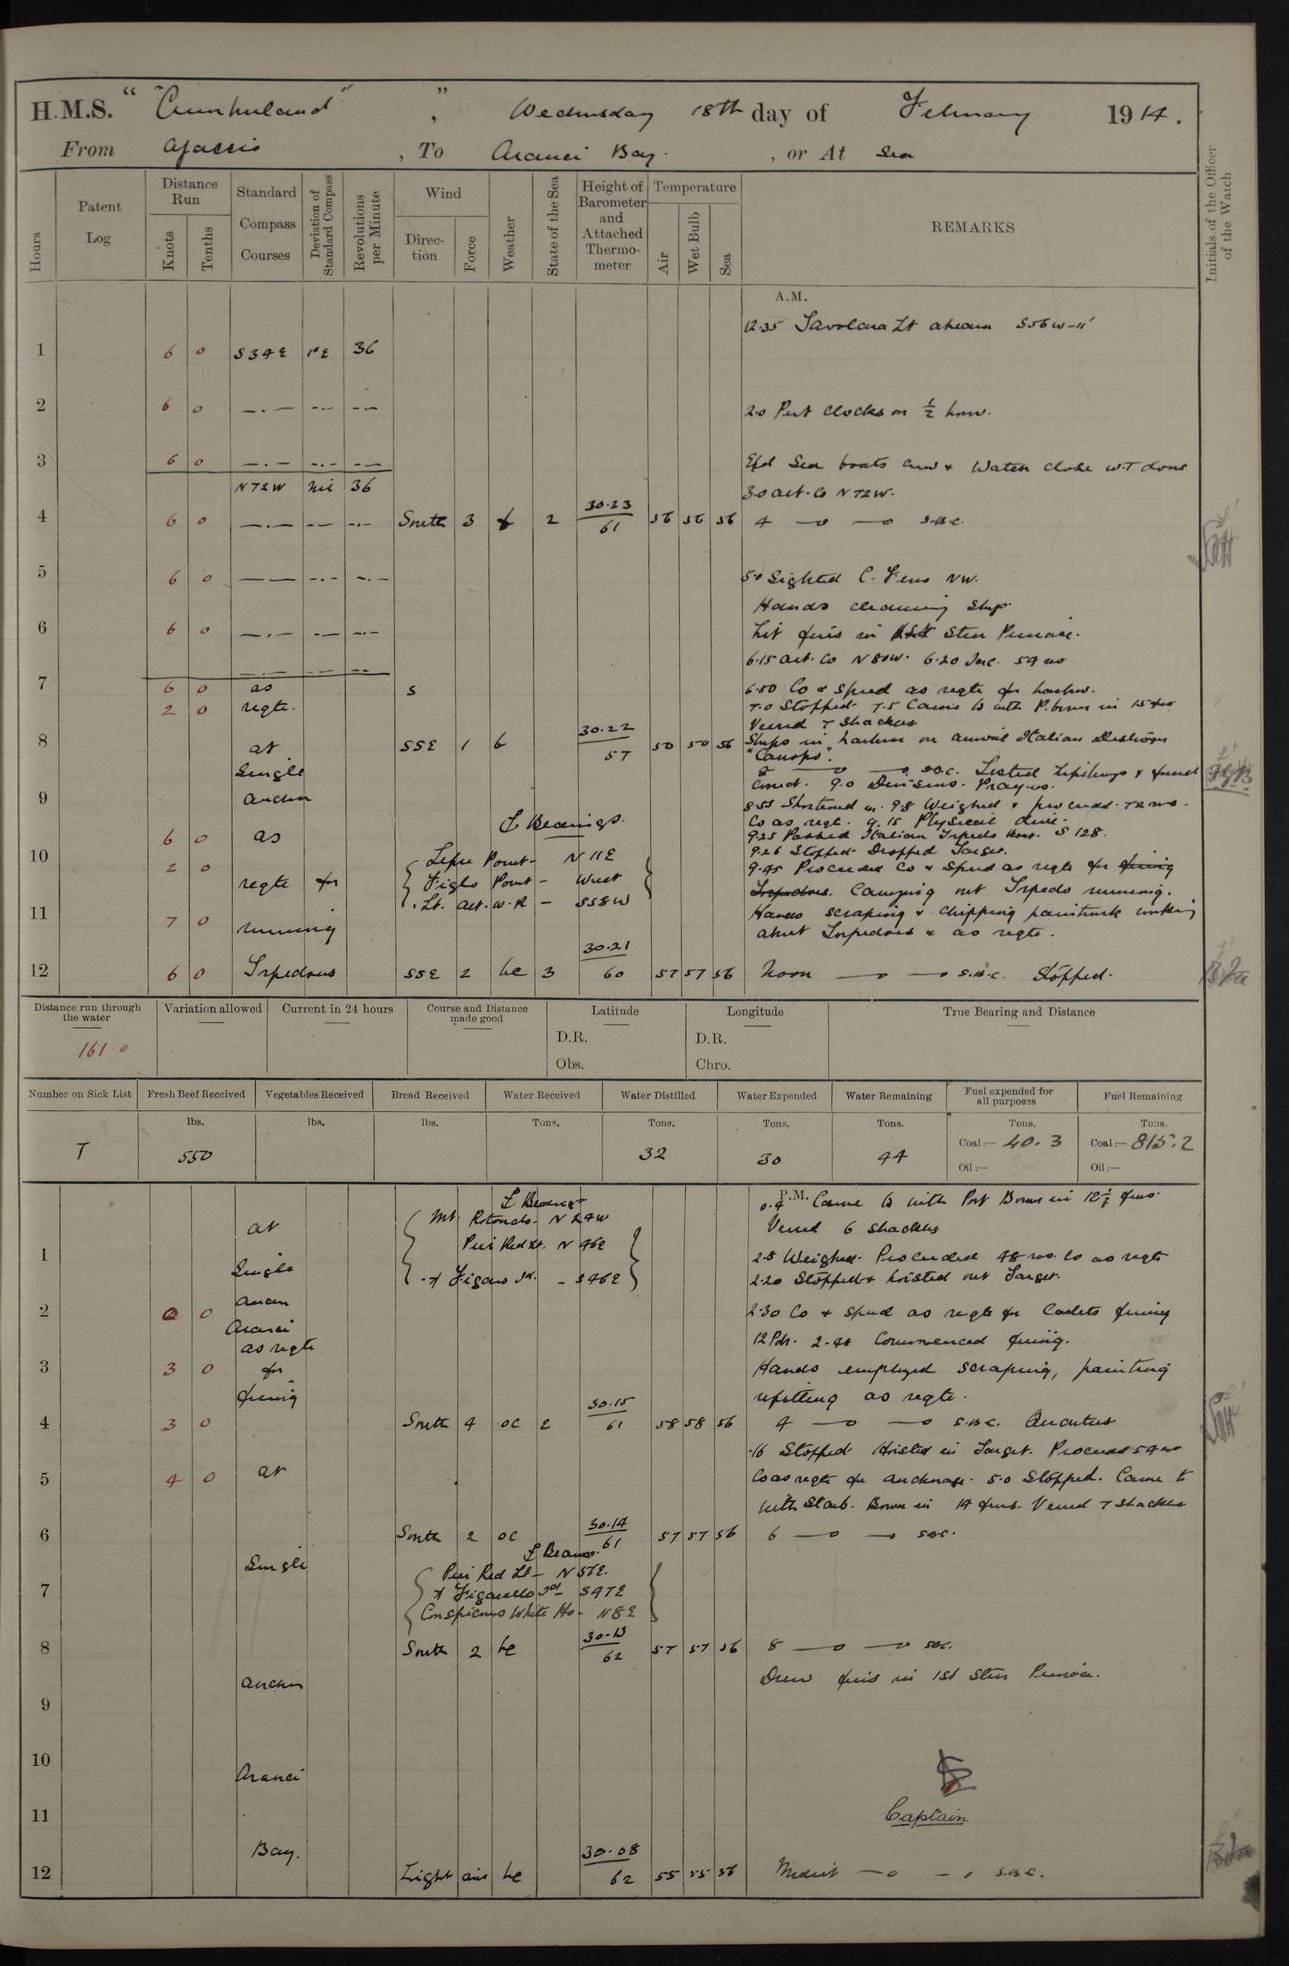 H.M.S. " "Cumberland" ", Wednesday 18th day of February 1914.
From Ajaccio, To Aranci Bay., or At Sea
Hours
Patent Log
Distance Run
Knots
Tenths
Standard Compass Courses
Deviation of Standard Compass
Revolutions per Minute
Wind
Direction
Force
Weather
State of the Sea
Height of Barometer and Attached Thermometer
Temperature
Air
Wet Bulb
Sea
REMARKS
Initials of the Officer of the Watch
A.M.
12.35 Tavolara Lt abeam S56W-11'
1 6 0 S34E 1°E 36
2 6 0 —.— —.— —.— 2.0 Put clocks on ½ hour.
3 6 0 —.— —.— —.— Exd Sea boats crew & Water close W.T. doors
N72W Nil 36 3.0 alt. Co N72W.
4 6 0 —.— —.— —.— South 3 f 2 30.23 61 56 56 56 4 —o —o S.B.C.
5 6 0 —.— —.— —.— 5.0 Sighted C. Feno NW.
Hands cleaning Ship.
6 6 0 —.— —.— —.— Lit fires in Stm Pinnace.
—.— —.— —.— 6.15 alt. Co N80W. 6.20 Inc. 54 revs
7 6 0 as S 6.50 Co & Speed as reqte for harbour.
2 0 reqte. 7.0 Stopped. 7.5 Came to with P. bower in 15 fms
Veered 7 Shackles
8 at SSE 1 b 30.22 57 50 50 56 Ships in harbour on arrival Italian Destroyer
"Canopo".
Single 8 —o —o S.B.C. Tested
correct. 9.0 Divisions. Prayers.
9 anchor 8.55 Shortened in. 9.8 Weighed & proceeded. 72 revs.
L Bearings. Co as reqte. 9.15 Physical drill.
6 0 as 9.25 Passed Italian Torpedo boat. S 128.
10 Lepre Point - N11E 9.26 Stopped. Dropped Target.
2 0 reqte for Figlo Point - West 9.45 Proceeded Co & Speed as reqte for firing
Lt. alt. w. R - SS8W Torpedoes. Carrying out Torpedo running.
11 7 0 running Hands scraping & chipping paintwork working
about Torpedoes & as reqte.
12 6 0 Torpedoes SSE 2 bc 3 30.21 60 57 57 56 Noon —o —o S.B.C. Stopped.
Distance run through the water
161.0
Variation allowed
Current in 24 hours
Course and Distance made good
Latitude
D.R.
Obs.
Longitude
D.R.
Chro.
True Bearing and Distance
Number on Sick List
7
Fresh Beef Received
lbs.
550
Vegetables Received
lbs.
Bread Received
lbs.
Water Received
Tons.
Water Distilled
Tons.
32
Water Expended
Tons.
30
Water Remaining
Tons.
44
Fuel expended for all purposes
Tons.
Coal:— 40.3
Oil:—
Fuel Remaining
Tons.
Coal:— 815.2
Oil:—
P.M.
L Bearings 0.4 Came to with Port Bower in 12½ fms.
at Mt. Rotondo - N24W Veered 6 Shackles
1 Pier Red Lt. N46E 2.5 Weighed. Proceeded 48 revs. Co as reqte
Single X Figaro Id. - S46E 2.20 Stopped & hoisted out Target.
anchor
2 0 0 Aranci 2.30 Co & Speed as reqte for Cadets firing
as reqte 12 Pdr. 2.40 Commenced firing.
3 3 0 for Hands employed scraping, painting
firing refitting as reqte.
4 3 0 South 4 oc 2 30.15 61 58 58 56 4 —o —o S.B.C. Quarters
.16 Stopped. Hoisted in Target. Proceeded 54 revs
5 4 0 at Co as reqte for anchorage. 5.0 Stopped. Came to
with Starb. Bower in 14 fms. Veered 7 Shackles
6 South 2 oc 30.14 61 57 57 56 6 —o —o S.B.C.
L Bearings.
Single Pier Red Lt - N51E.
7 X Figarello Id - S47E
Conspicuous White Ho - N8E
8 South 2 bc 30.13 62 57 57 56 8 —o —o S.B.C.
anchor Drew fires in 1st Stm Pinnace.
9
10
Aranci
11 Captain
Bay.
12 Light airs bc 30.08 62 55 55 56 Midnt —o —o S.B.C.